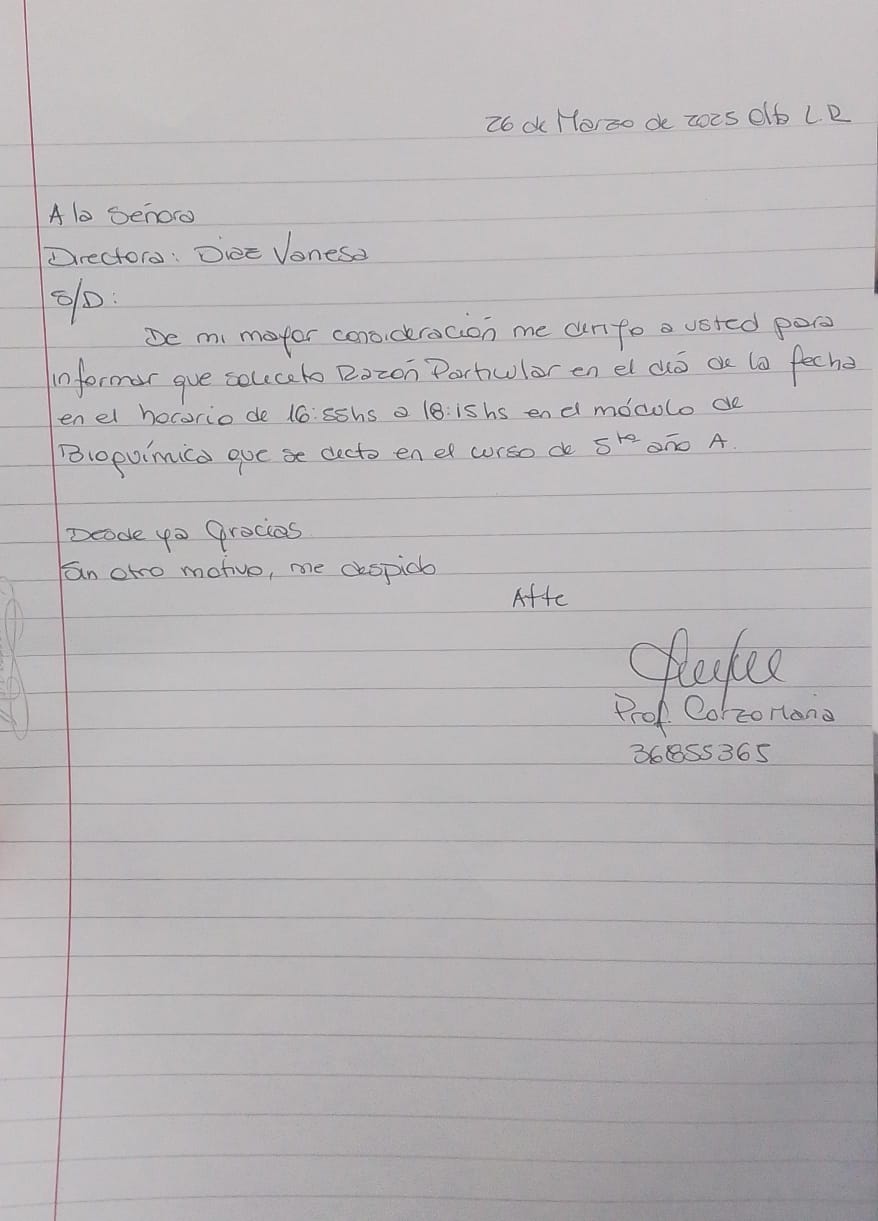 26 de Marzo de 2025 Olta L.R
A la Señora
Directora: Diaz Vanesa
S/D:
De mi mayor consideración me dirijo a usted para
informar que solicito Razón Particular en el día de la fecha
en el horario de 16:55hs a 18:15hs en el módulo de
Bioquímica que se dicta en el curso de 5to año A.
Desde ya Gracias
Sin otro motivo, me despido
Atte
Prof. Corzo Maria
36855365